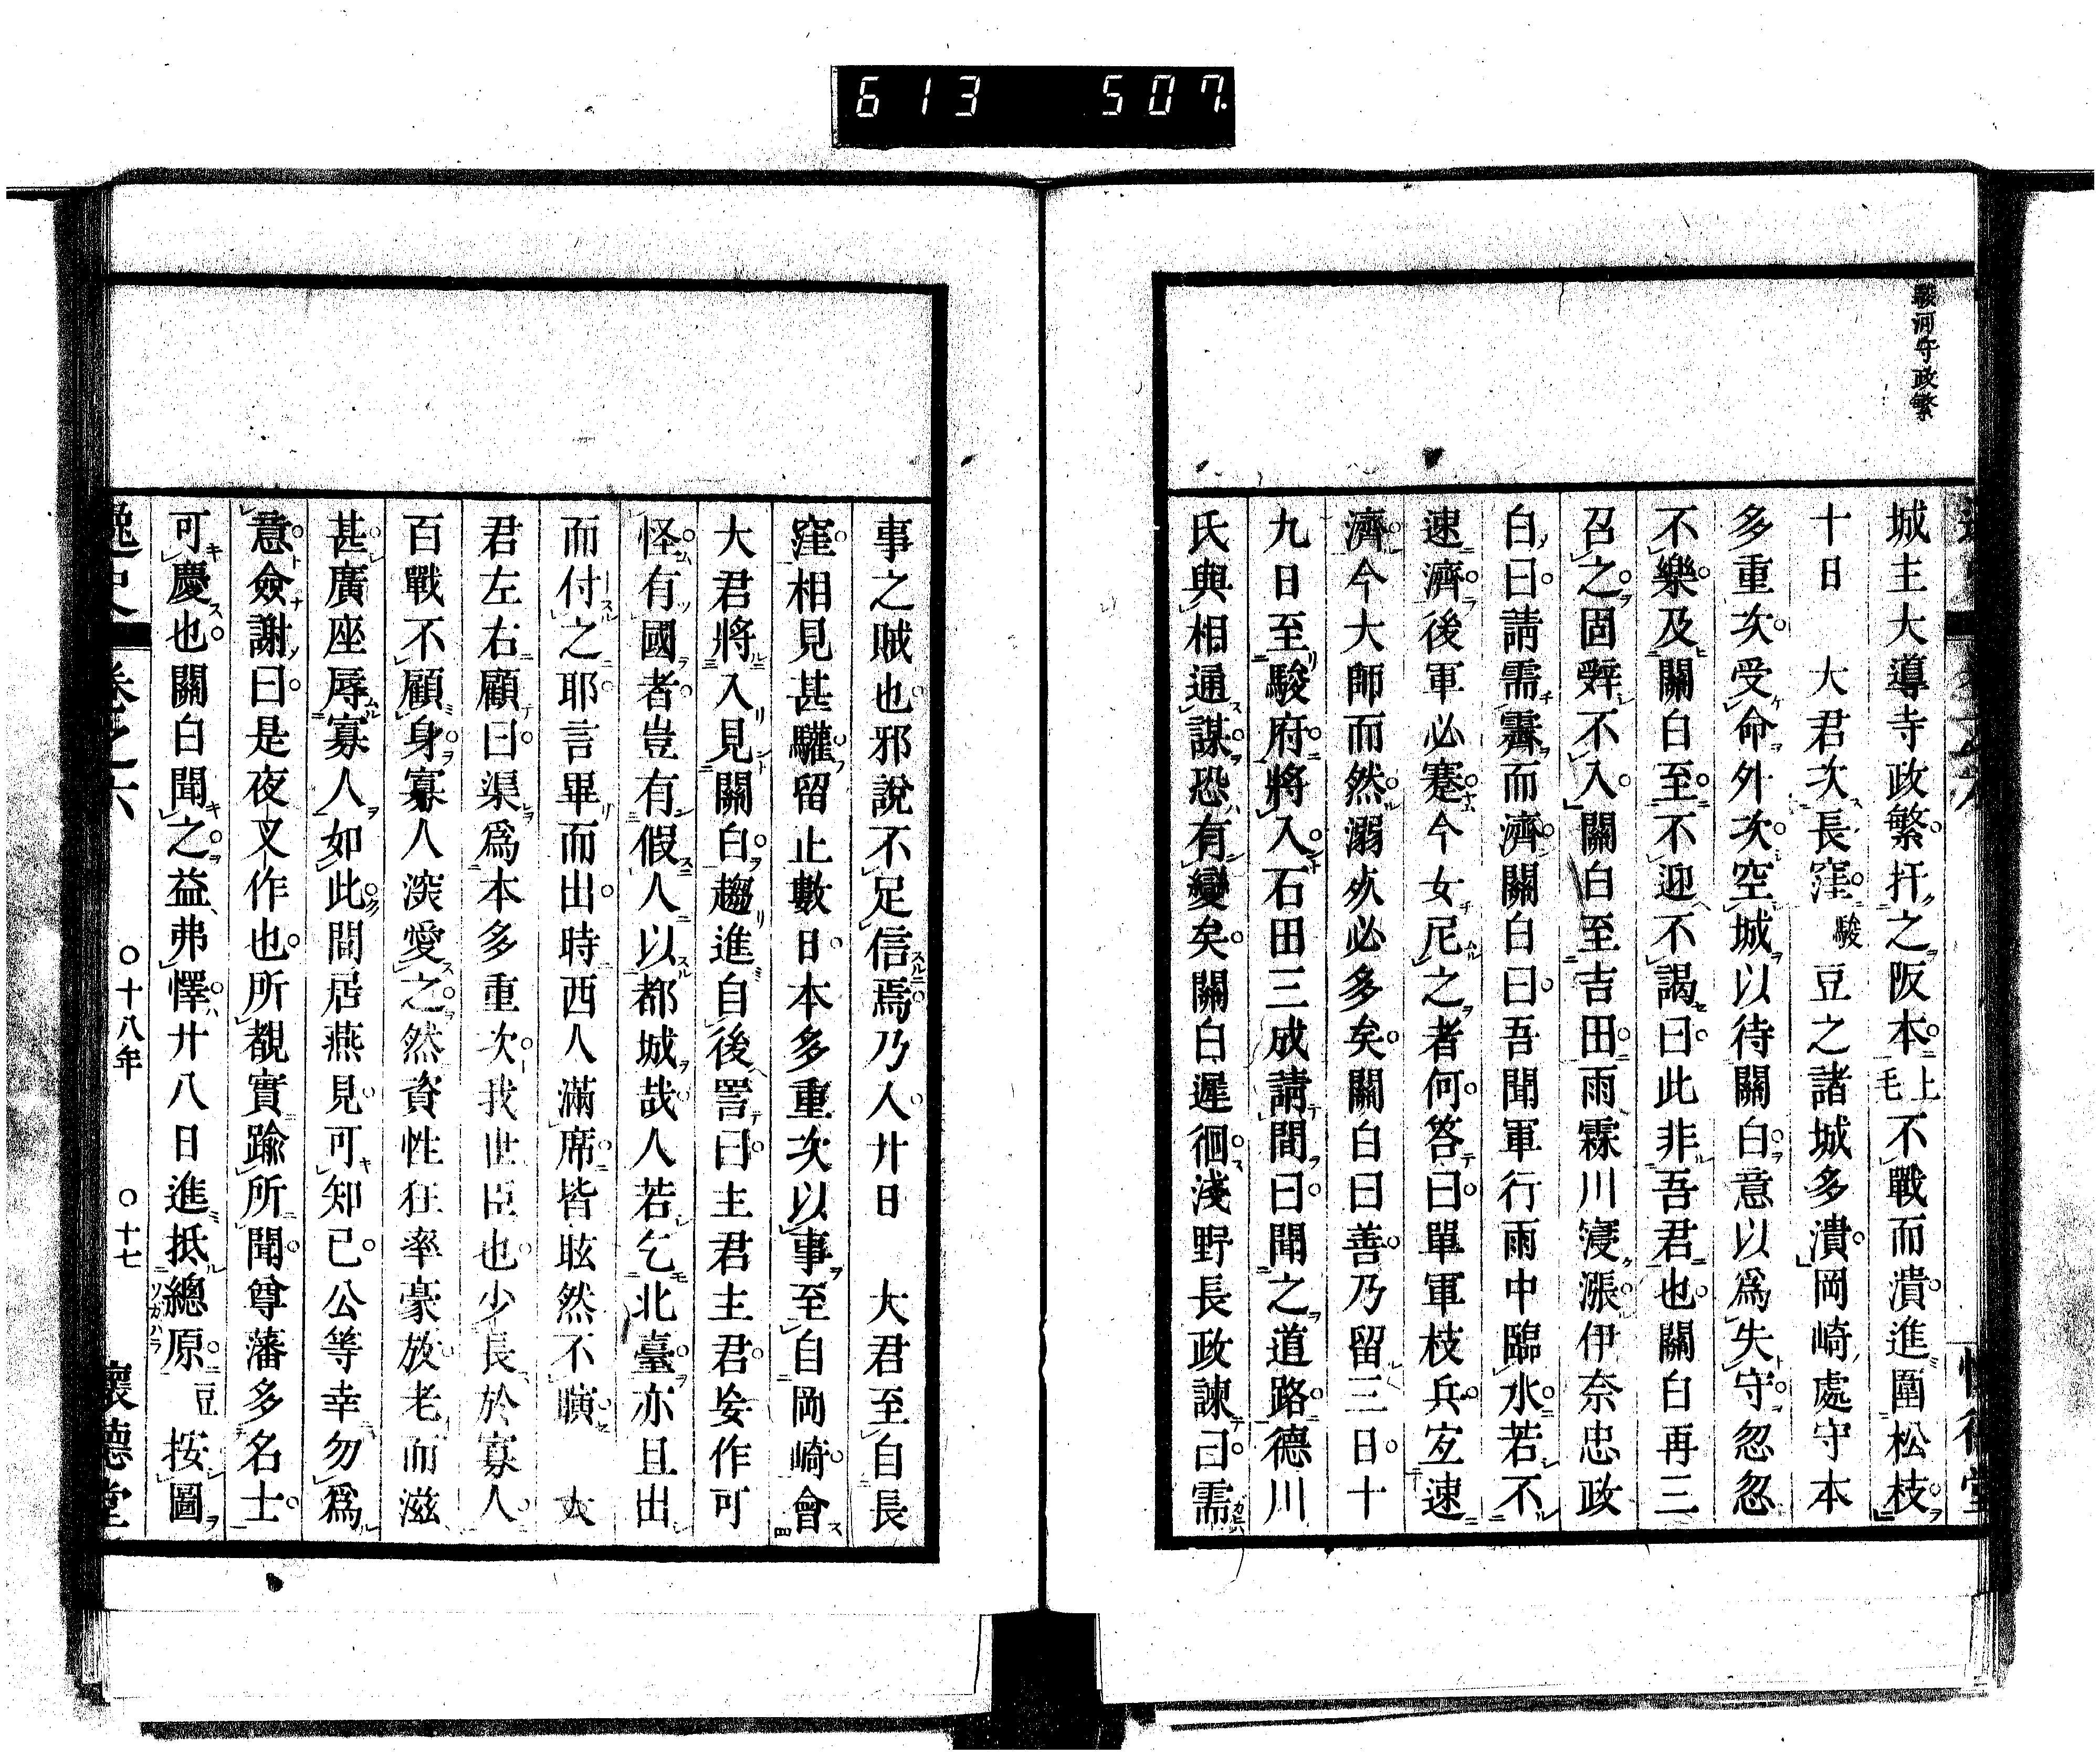 613 507
駿河守政繁
城主大導寺政繁扞之阪本上毛不戰而潰進圍松枝
十日 大君次長窪駿豆之諸城多潰岡崎處守本
多重次受命外次空城以待關白意以爲失守忽忽
不樂及關白至不迎不謁曰此非吾君也關白再三
召之固辭不入關白至吉田雨霖川寖漲伊奈忠政
白曰請需霽而濟關白曰吾聞軍行雨中臨水若不
速濟後軍必蹇今女尼之者何答曰單軍枝兵宜速
濟今大師而然溺必多矣關白曰善乃留三日十
九日至駿府將入石田三成請間曰聞之道路德川
氏與相通謀恐有變矣關白遲徊淺野長政諫曰需
事之賊也邪說不足信焉乃入廿日 大君至自長
窪相見甚驩留止數日本多重次以事至自岡崎會
大君將入見關白趨進自後詈曰主君主君妄作可
怪有國者豈有假人以都城哉人若乞北臺亦且出
而付之耶言畢而出時西人滿席皆眩然不 大
君左右顧曰渠爲本多重次我世臣也少長於寡人
百戰不顧身寡人深愛之然資性狂率豪放老而滋
甚廣座辱寡人如此間居燕見可知已公等幸勿爲
意僉謝曰是夜叉作也所覩實踰所聞尊藩多名士
可慶也關白聞之益弗懌廿八日進抵總原豆按圖
逸史 卷之六 〇十八年 〇十七 懷德堂